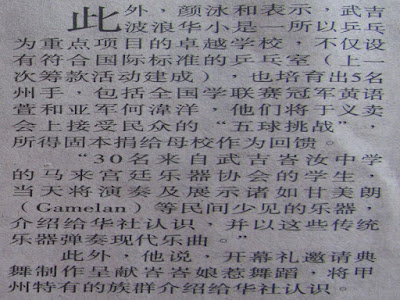 此外，颜泳和表示，武吉
波浪华小是一所以乒乓
为重点项目的卓越学校，不仅设
有符合国际标准的乒乓室（上一
次筹款活动建成），也培育出5名
州手，包括全国学联赛冠军黄语
萱和亚军何湋洋，他们将于义卖
会上接受民众的“五球挑战”，
所得固本捐给母校作为回馈。
“30名来自武吉峇汝中学
的马来宫廷乐器协会的学生，
当天将演奏及展示诸如甘美朗
（Gamelan）等民间少见的乐器，
介绍给华社认识，并以这些传统
乐器弹奏现代乐曲。”
此外，他说，开幕礼邀请典
舞制作呈献峇峇娘惹舞蹈，将甲
州特有的族群介绍给华社认识。